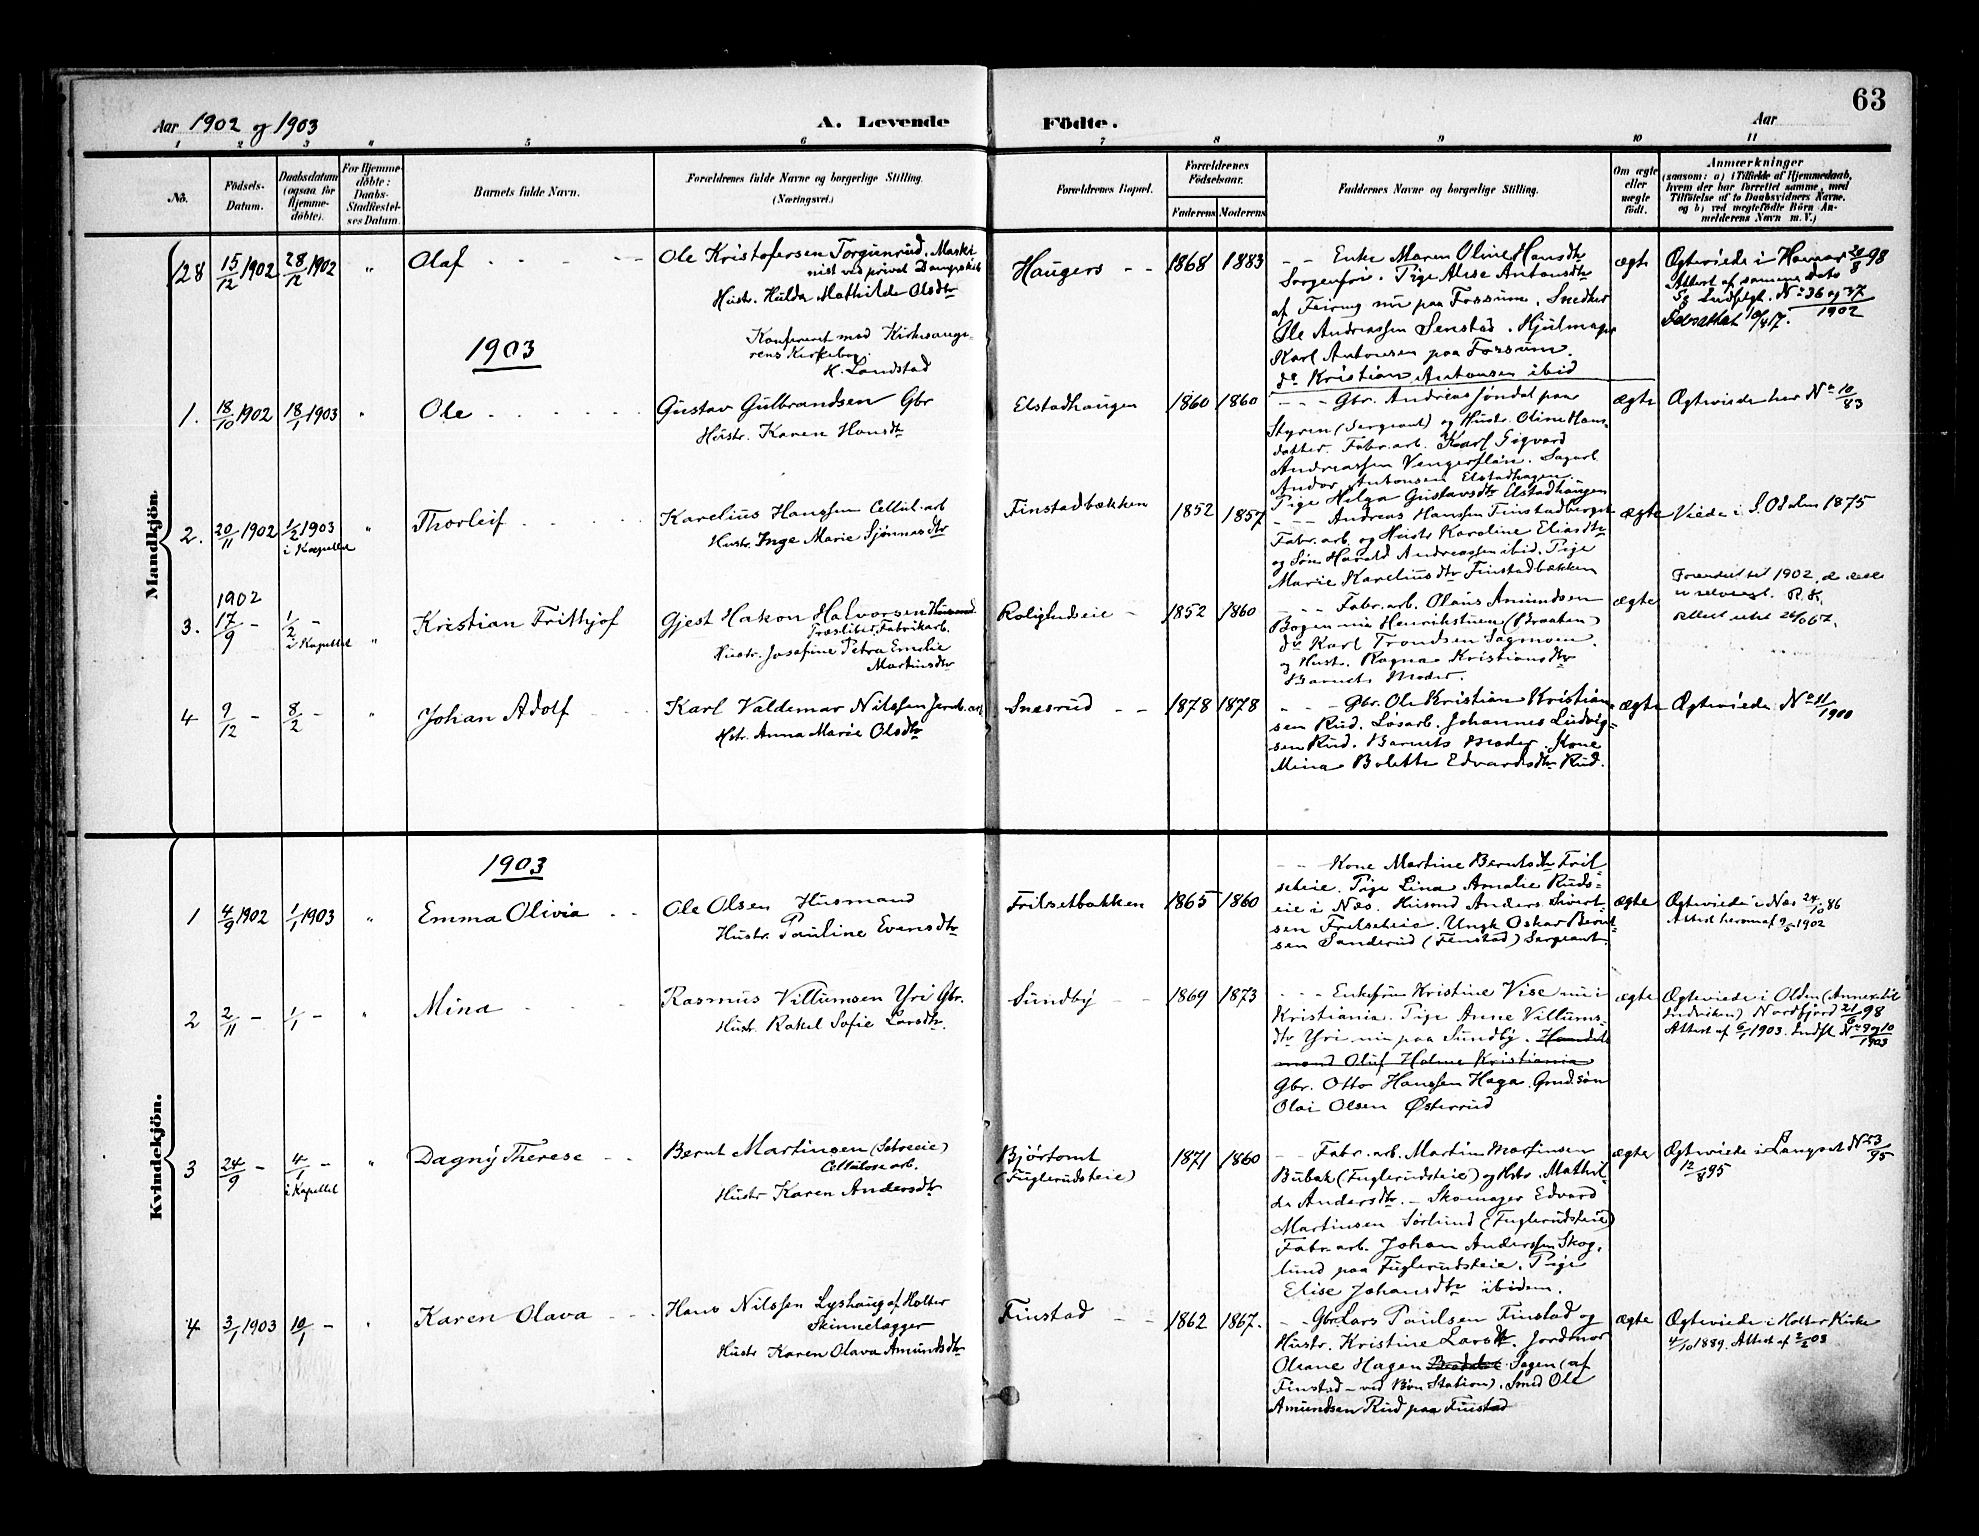 63
Aar 1902 og 1903
A. Levende Födte.
Aar
1 2 3 4 5 6 7 8 9 10 11
No.
Födsels-Datum.
Daabsdatum (ogsaa for Hjemme-döbte).
For Hjemme-döbte: Daabs-Stadfæstelses Datum.
Barnets fulde Navn.
Forældrenes fulde Navne og borgerlige Stilling. (Næringsvei.)
Forældrenes Bopæl.
Forældrenes Födselsaar.
Faderens
Moderens
Faddernes Navne og borgerlige Stilling.
Om ægte eller uægte födt.
Anmærkninger
(saasom: a) i Tilfælde af Hjemmedaab,
hvem der har forrettet samme, med
Tilföielse af to Daabsvidners Navne.
og b) ved uægtefödte Börn An-
melderens Navn m. V.)
Mandkjön.
128 15/12 1902 28/12 1902 " Olaf
Ole Kristofersen Torgunrud, Maski
nist ved privat Dampskib
Hustr. Hulda Mathilde Olsdtr
Haugers 1868 1883
Enke Maren Oline Hansdtr
Sorgenfri. Pige Alise Antonsdtr
af Feiring nu paa Fossum. Snedker
Ole Andreassen Senstad. Hjulmager
Karl Antonsen paa Fossum.
do Kristian Antonsen ibid
ægte
Ægteviede i Hamar 20/8 98
Attest af samme dato
Se Indfltgt. No 36 og 37 1902
Konfereret med Kirkesange-
rens Kirkebog.
H. Landstad
1903
1. 18/10 1902 18/1 1903 " Ole
Gustav Gulbrandsen Gbr
Hustr. Karen Hansdtr
Elstadhaugen 1860 1860
Gbr. Andreas Jøndal paa
Styren (Sergeant) og Hustr. Oline Hans-
datter. Fabr. arb. Karl Sigvard
Andreassen Vengerflån. Sagarb
Andor Antonsen Elstadhagen
Pige Helga Gustavsdtr Elstadhaugen
ægte
Ægteviede her No 10/83
2. 20/11 1902 1/2 1903 i Kapellet " Thorleif
Karelius Hanssen Cellul. arb
Hustr. Inge Marie Sjønnesdtr
Finstadbækken 1852 1857
Andreas Hanssen Finstadberget
Fabr. arb. og Hustr Karoline Eliasdtr
og Søn Harald Andreassen ibid. Pige
Marie Kareliusdtr Finstadbækken
ægte
Viede i S. Odalen 1875
3. 1902 17/9 - 1/2 - i Kapellet " Kristian Frithjof
Gjest Hakon Halvorsen Husmd.
Træsliber, Fabrikarb.
Hustr. Josefine Petra Emelie
Martinsdtr
Rolighedseie 1852 1860
Fabr. arb. Olaus Amundsen
Bogen nu Henrikstuen (Braaten)
do Karl Trondsen Sagmoen
og Hustr. Ragna Kristiansdtr
Barnets Moder.
ægte
4 9/12 - 8/2 - " Johan Adolf
Karl Valdemar Nilssen Jernb. arb
Hstr. Anna Marie Olsdtr
Snesrud 1878 1878
Gbr. Ole Kristian Kristian-
sen Rud. Løsarb. Johannes Ludvig-
sen Rud. Barnets Moder. Kone
Mina Bolette Edvardsdtr Rud.
ægte
Ægteviede No 11/1900
Kvindekjön.
1903
1 4/9 1902 1/1 1903 " Emma Olivia
Ole Olsen Husmand
Hustr. Pauline Evensdtr
Frilsetbakken 1865 1860
Kone Martine Berntsdtr Fril
seteie. Pige Lina Amalie Ruds-
eie i Næs. Husmd Anders Sivert
sen Frilseteie. Ungk Oskar Bernt
sen Sanderud (Finstad) Sergeant
ægte
Ægteviede i Næs 24/10 86
Attest herom af 9/5 1902
2 2/11 - 1/1 - " Mina
Rasmus Villumsen Yri Gbr.
Hustr. Rakel Sofie Larsdtr.
Sundby 1869 1873
Enkefru Kristine Vise nu i
Kristiania. Pige Anne Villums-
dtr Yri nu paa Sundby. Handels
mand Oluf Holme Kristiania
Gbr. Otto Hanssen Haga. Grmd. søn
Olai Olsen Østerrud
ægte
Ægteviede i Olden (Annex til
Indviken) Nordfjord 21/6 98
Attest af 6/1 1903. Indfl. No 9 og 10 1903
3 24/9 - 4/1 - i Kapellet " Dagny Therese
Bernt Martinsen (Sætreeie)
Cellulose arb.
Hustr Karen Andersdtr
Bjørtomt
(Fuglerudseie) 1871 1860
Fabr. arb. Martin Martinsen
Bubak (Fuglerudseie) og Hstr. Mathil-
de Andersdtr. – Skomager Edvard
Martinsen Sørlund (Fuglerudseie)
Fabr. arb. Johan Anderssen Skog-
lund paa Fuglerudseie. Pige
Elise Johansdtr ibidem.
ægte
Ægteviede i Langset No 3/95
12/8 95
4 3/1 1903 10/1 - " Karen Olava
Hans Nilssen Lyshaug af Holter
Skinnelægger
Hustr Karen Olava Amundsdtr
Finstad 1862 1867.
Gbr Lars Paulsen Finstad og
Hustr. Kristine Larsdtr. Jordmor
Oleane Hagen Sagen (af
Finstad – ved Bøn Station). Smed Ole
Amundsen Rud paa Finstad
ægte
Ægteviede i Holter Kirke
4/10 1889. Attest af 2/2 03